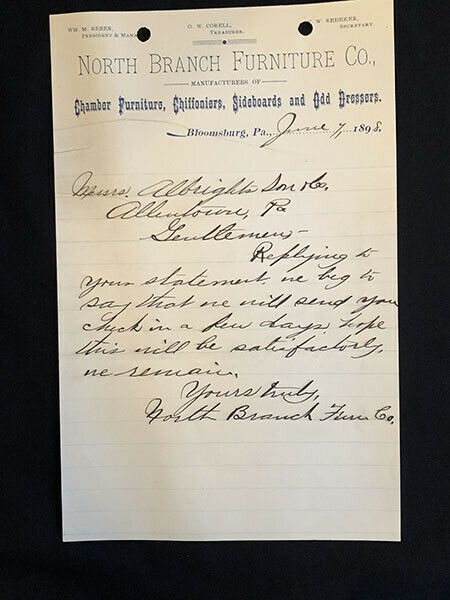 WM. M. REBER,
PRESIDENT & MAN
G. W. CORELL,
TREASURER.
W. REDEKER,
SECRETARY.
NORTH BRANCH FURNITURE CO.,
MANUFACTURERS OF
Chamber Furniture, Chiffoniers, Sideboards and Odd Dressers.
Bloomsburg, Pa., June 7, 1898.
Messrs. Albrights Son & Co.
Allentown, Pa
Gentlemen,-
Replying to
your statement, we beg to
say that we will send you
check in a few days, hope
this will be satisfactory,
we remain,
Yours truly,
North Branch Furn Co.